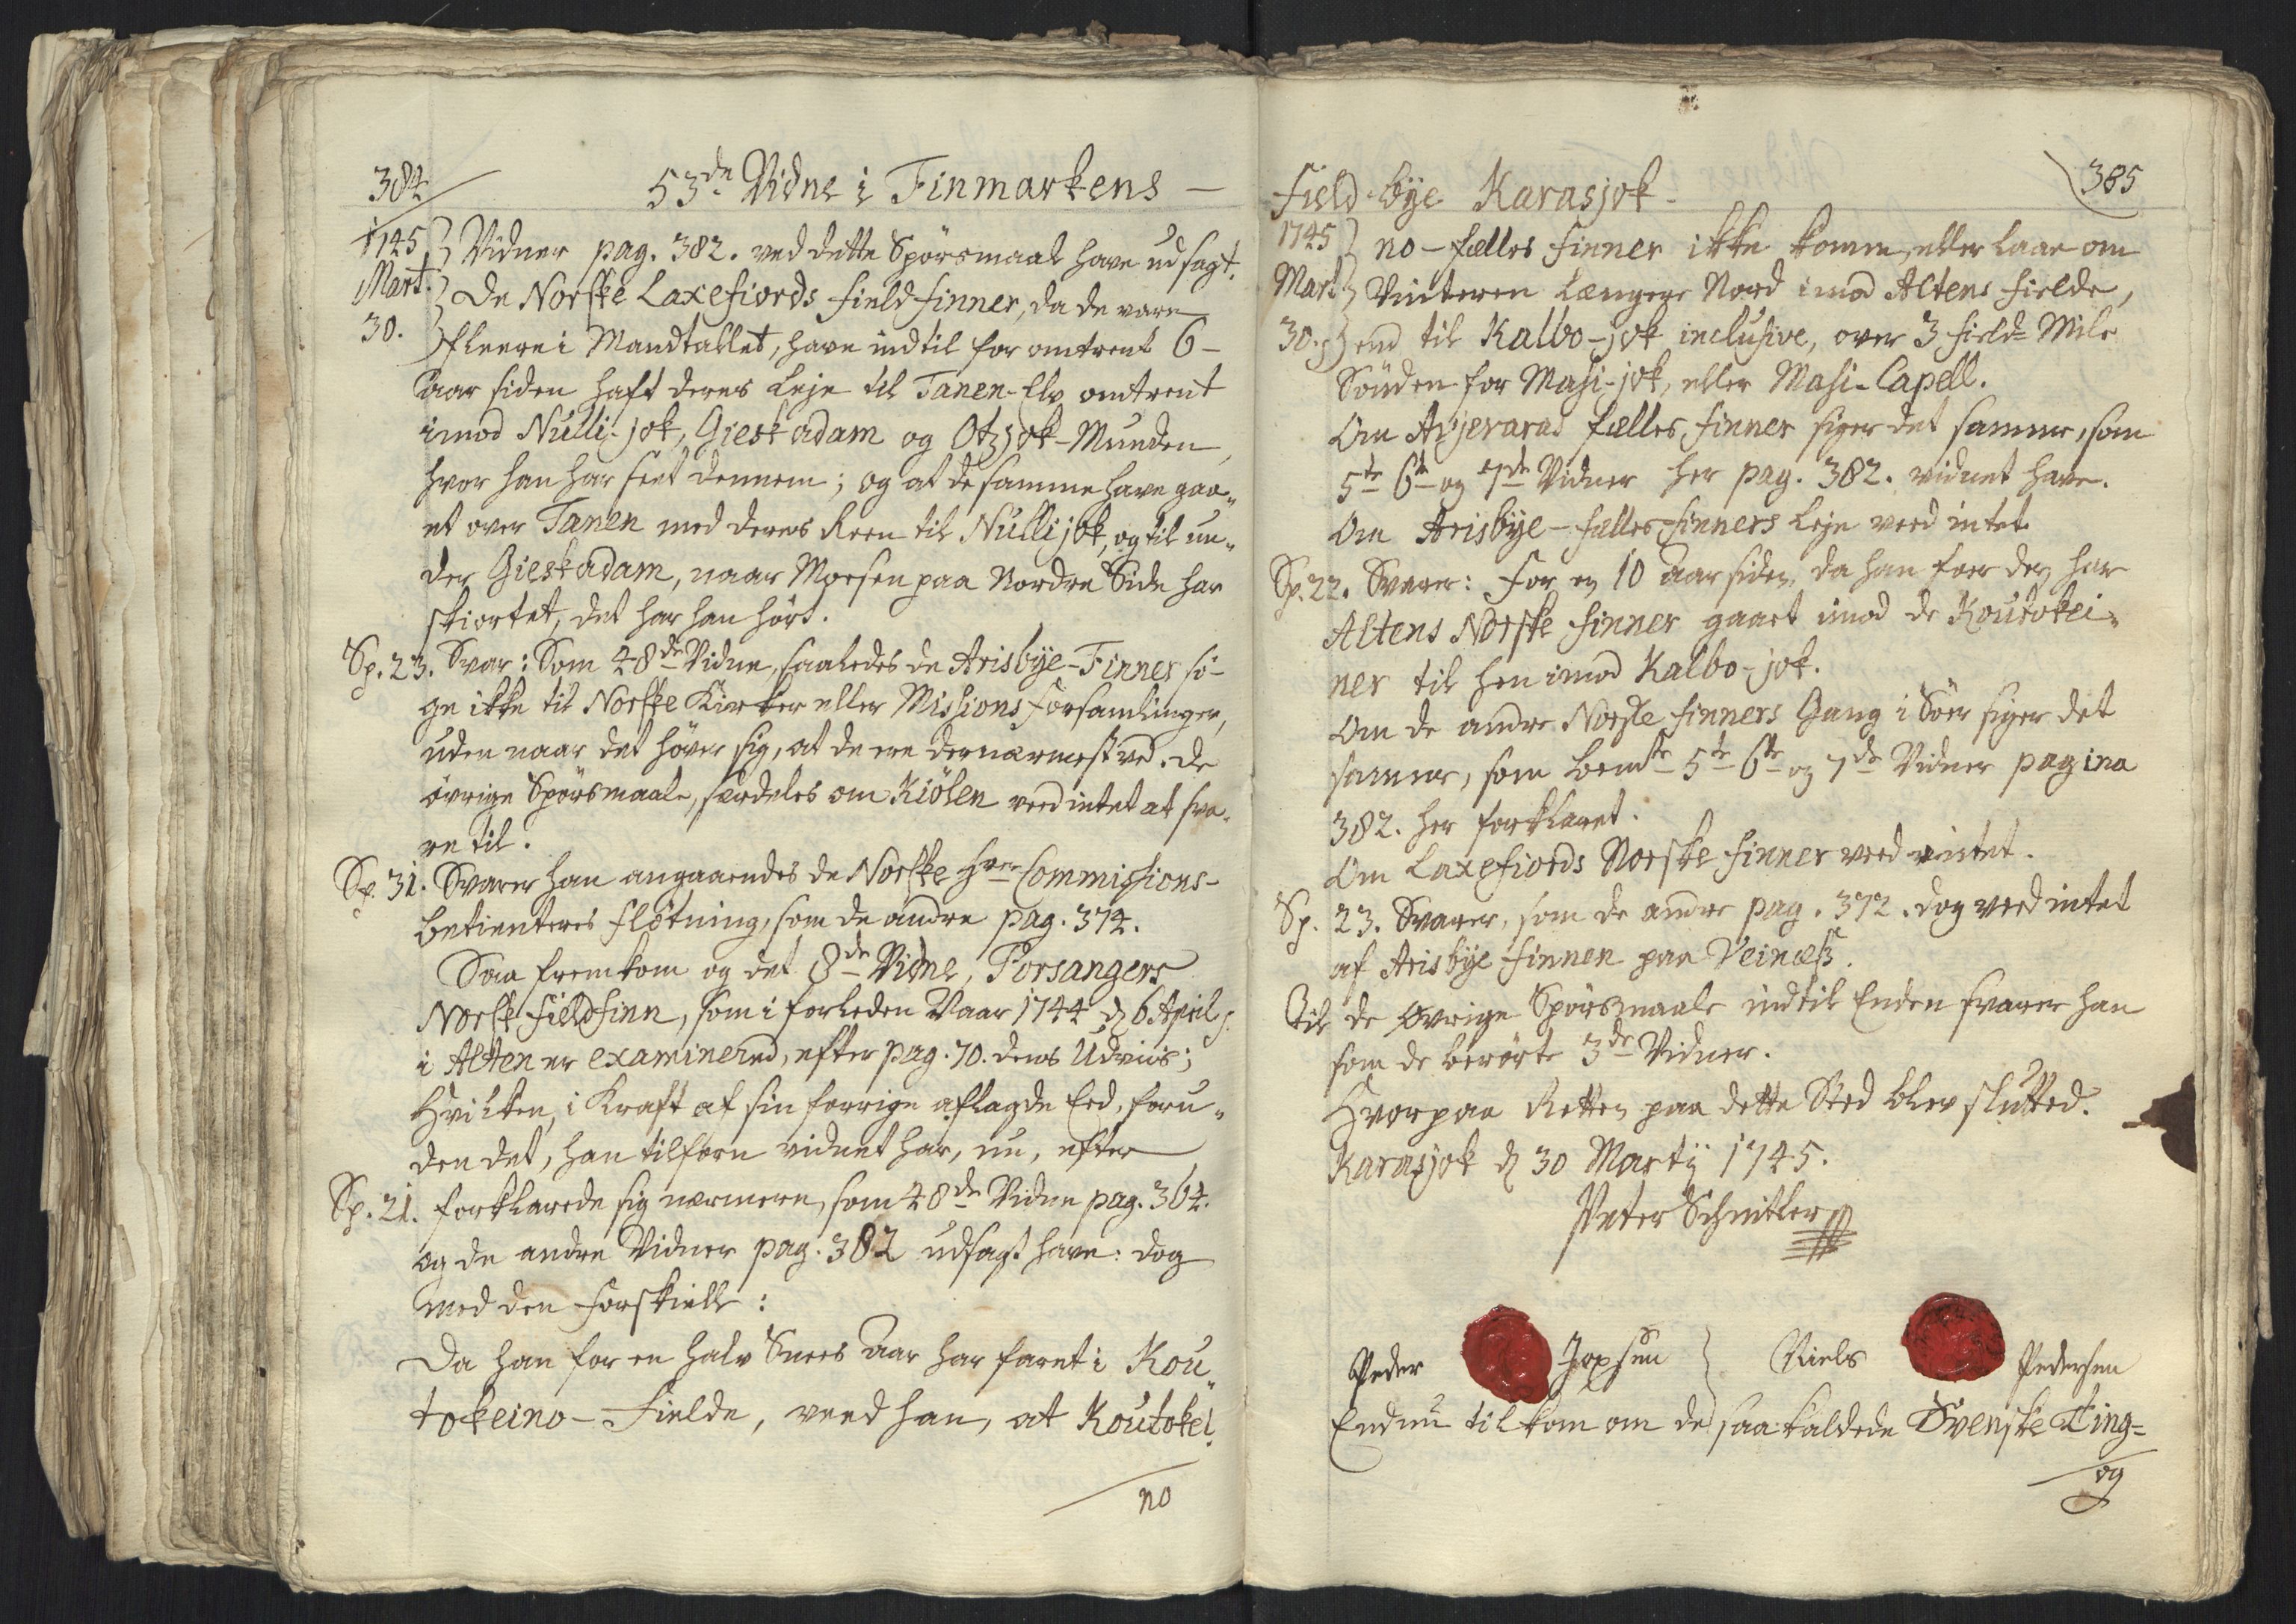 384
53de Vidne i Finmarkens –
1745
Mart.
30.
Vidner pag. 382. ved dette Spörsmaal have udsagt.
De Norske Laxefiords Field finner, da de vare
fleere i Mandtallet, have indtil for omtrent 6 –
aar siden haft deres Leje til Tanen-Elv omtrent
imod Nulli-jok, Gieskadam og Otzjok-Munden,
hvor han har seet dennem; og at de samme have gaa„
et over Tanen med deres Reen til Nullijok, og til un„
der Gieskadam, naar Moesen paa Nordre Side har
skiortet, det har han hört.
Sp. 23. Svar: Som 48de Vidne, saaledes de Arisbÿe-Finner sö-
ge ikke til Norske Kirker eller Missions forsamlinger,
uden naar det höver sig, at de ere dernærmest ved. De
övrige Spörsmaale, særdeles om Kiölen veed intet at sva„
re til.
Sp. 31. Svarer han angaaendes de Norske Hrr Commissions-
betienteres flötning, som de andre pag. 374.
Saa fremkom og det 8de Vidne, Porsangers
Norsk fieldfinn, som i forleden Vaar 1744 d 6 April
i Alten er examinered, efter pag. 70. dens Udviis;
Hvilken, i Kraft af sin forrige aflagde Eed, foru„
den det, han tilforn vidnet har, nu, efter
Sp. 21. forklarede sig nærmere, som 48de Vidne pag. 364.
og de andre Vidner pag. 382 udsagt have: dog
med den forskiell:
Da han for en halv Snees Aar har faret i Kou„
tokeino – Fielde, veed han, at Koutokei„
no
385
Field-bÿe Karasjok –
1745
Mart
30.
no – fælles finner ikke komme, eller laae om
Vinteren længere Nord imod Altens fielde,
end til Kalbo-jok inclusive, over 3 field Mile
Sönden for Masi-jok, eller Masi-Capell.
Om Avjevaras fælles finner siger det samme, som
5te 6te og 7de Vidner her pag. 382. vidnet have.
Om Arisbÿe – fælles finners Leje veed intet.
Sp. 22. Svarer: For en 10 aar siden, da han foer der, har
Altens Norske finner gaaet imod de Koutokei„
ner til hen imod Kalbo-jok.
Om de andre Norske finners Gang i Söer siger det
samme, som bemte 5te 6te og 7de Vidner pagina
382. her forklaret.
Om Laxefiords Norske finner veed intet.
Sp. 23. Svarer, som de andre pag. 372. dog veed intet
af Arisbÿe finnen paa Veinæss.
Til de övrige Spörsmaale indtil Enden svarer han
som de berörte 3de Vidner.
Hvorpaa Retten paa dette Sted blev slutted.
Karasjok d 30 Martÿ 1745.
Peter Schnitler
Peder Jopsen Niels Pedersen
Endnu tilkom om de saa kaldede Svenske Ting=
og